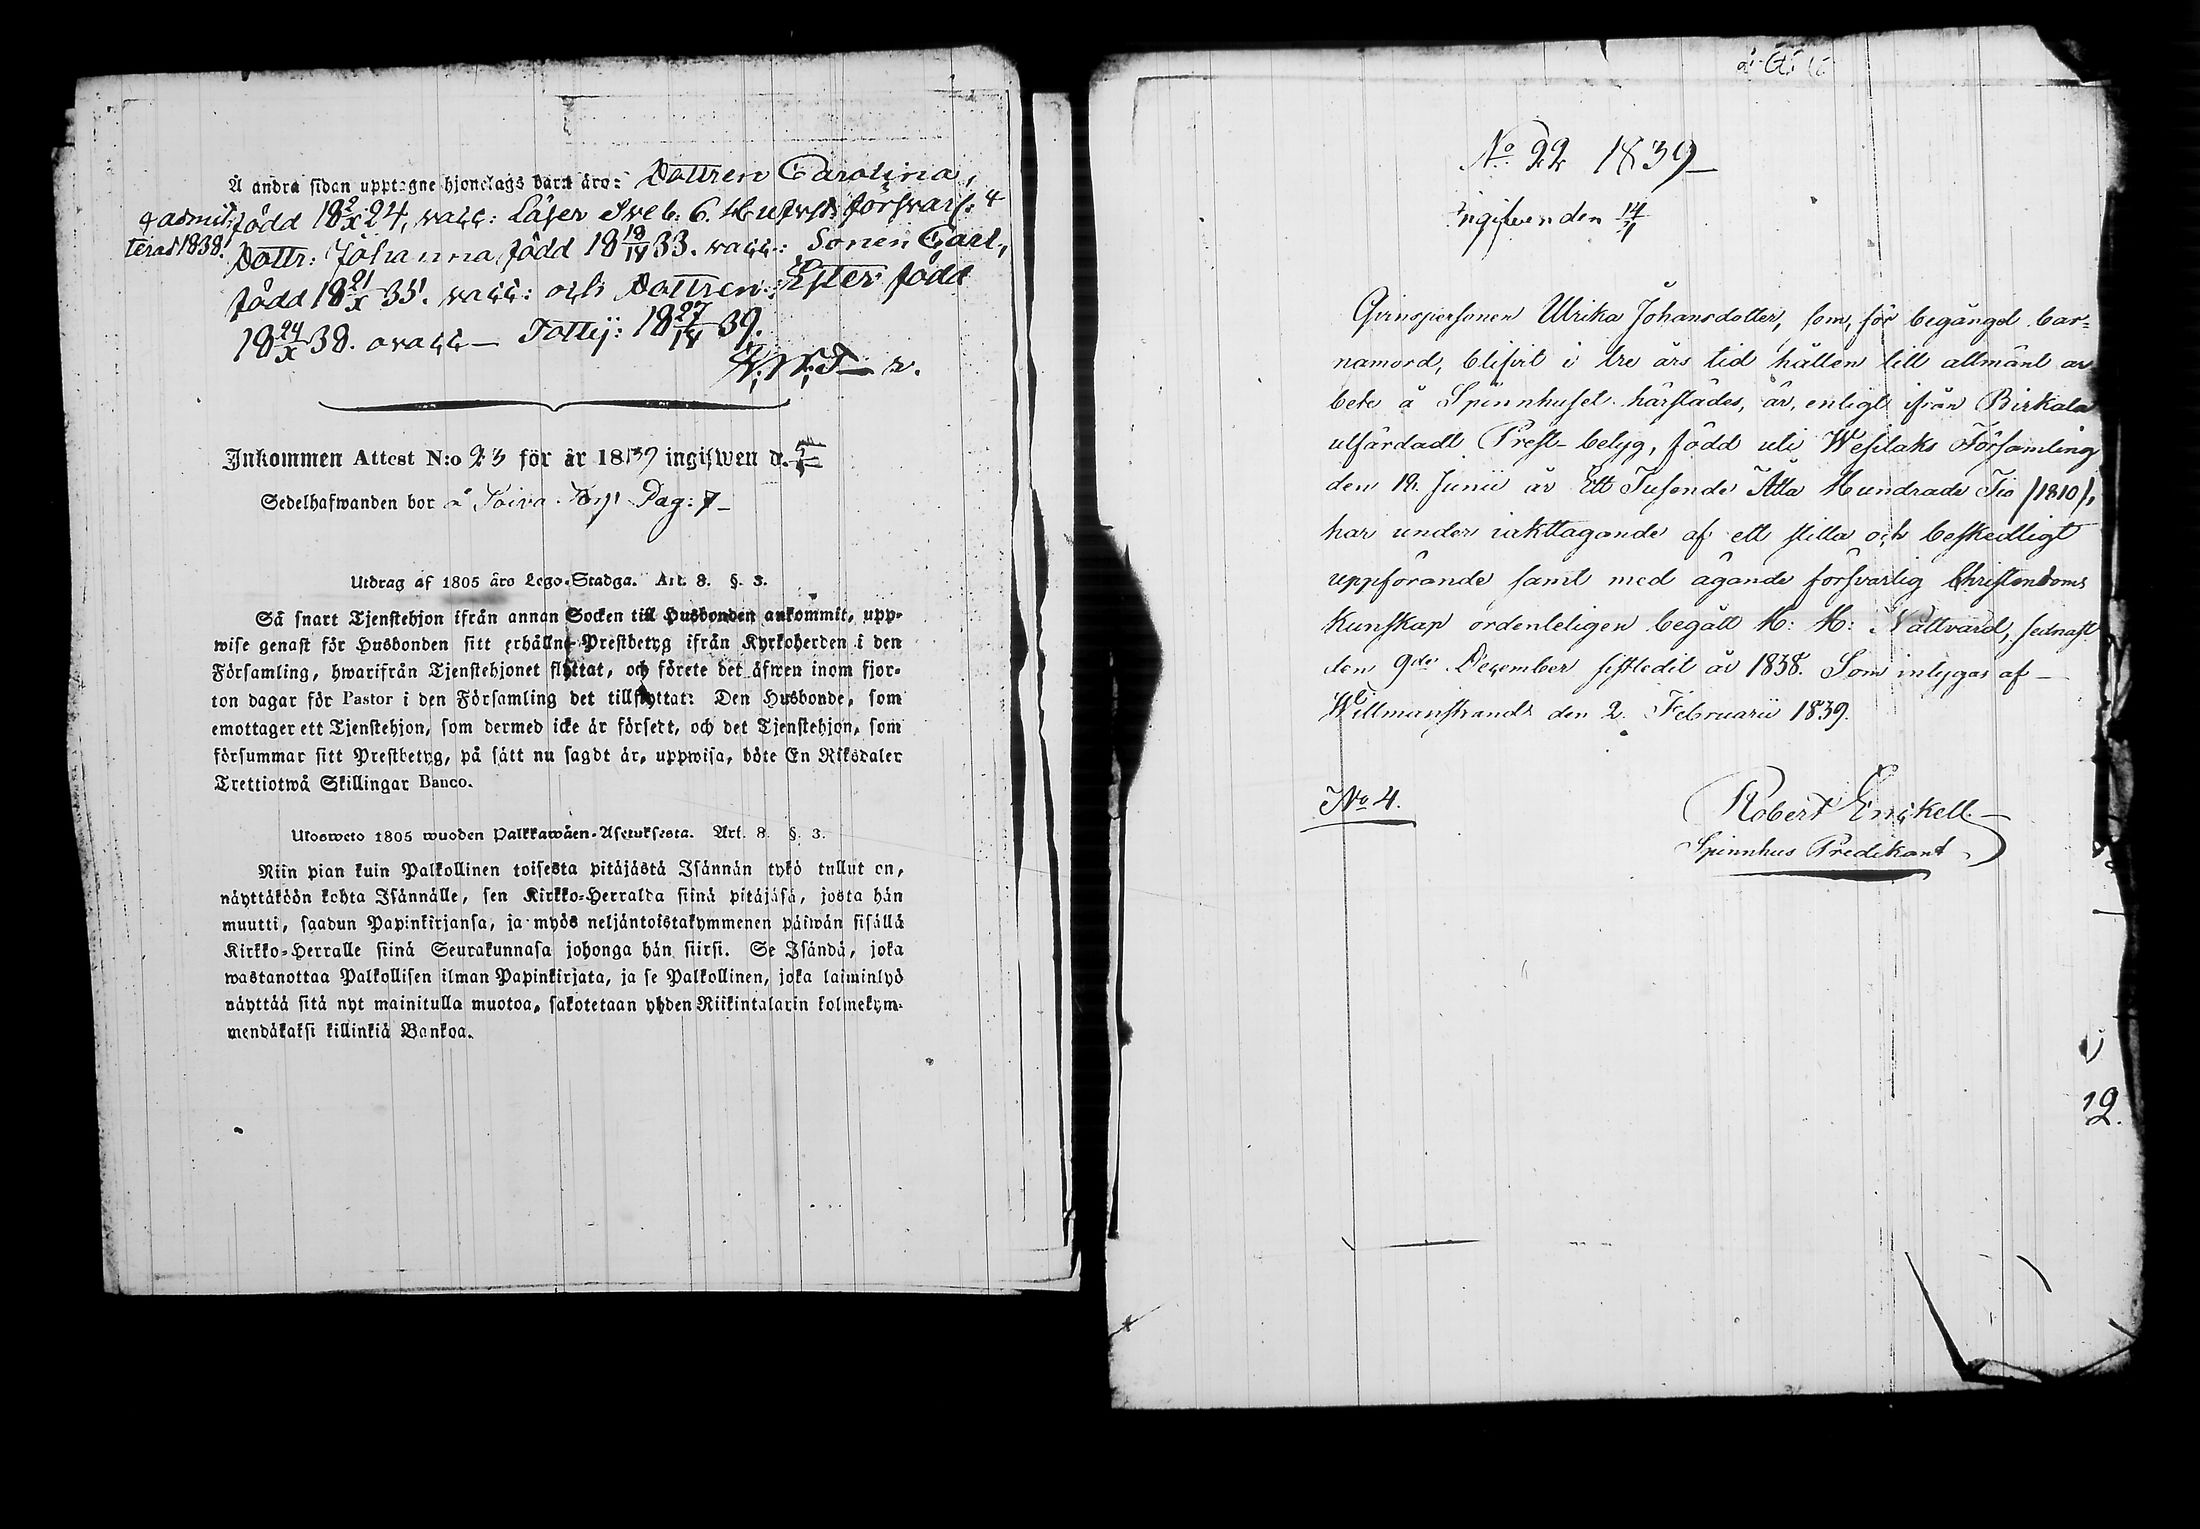 Å andra sidan upptagne hjonelags barn äro: Dottren Carolina,
född 18 2/X 24, vacc: Läser Sveb: 6. Hufvst: försvarl: &
admit-
terad 1838.
Dottr: Johanna född 18 18/IV 33. vacc: Sonen Carl,
född 18 21/X 35. vacc: och Dottren Ester född
18 24/X 38. ovacc — 18 27/IV 39.
Inkommen Attest N:o 23 för år 1839 ingifwen d.
Sedelhafwanden bor å Toiva Torp Pag: 7 —
Utdrag af 1805 års Lego-Stadga. Art. 8. §. 3.
Så snart Tjenstehjon ifrån annan Socken till Husbonden ankommit, upp-
wise genast för Husbonden sitt erhållne Prestbetyg ifrån Kyrkoherden i den
Församling, hwarifrån Tjenstehjonet flyttat, och förete det äfwen inom fjor-
ton dagar för Pastor i den Församling det tillflyttat: Den Husbonde, som
emottager ett Tjenstehjon, som dermed icke är försedt, och det Tjenstehjon, som
försummar sitt Prestbetyg, på sätt nu sagdt är, uppwisa, böte En Riksdaler
Trettiotwå Skillingar Banco.
Ulosweto 1805 wuoden Palkkawäen-Asetuksesta. Art. 8. §. 3.
Niin pian kuin Palkollinen toisesta pitäjästä Isännän tykö tullut on,
näyttäköön kohta Isännälle, sen Kirkko-Herralda siinä pitäjäsä, josta hän
muutti, saadun Papinkirjansa, ja myös neljäntoistakymmenen päiwän sisällä
Kirkko-Herralle siinä Seurakunnasa johonga hän siirsi. Se Isändä, joka
wastanottaa Palkollisen ilman Papinkirjata, ja se Palkollinen, joka laiminlyö
näyttää sitä nyt mainitulla muotoa, sakotetaan yhden Riikintalarin kolmekym-
mendäkaksi killinkiä Bankoa.
No 22 1839 —
Ingifven den 14/4
Qvinspersonen Ulrika Johansdotter, som, för begånget bar=
namord, blifvit i tre års tid hållen till allmänt ar
bete å Spinnhuset härstädes, är, enligt ifrån Birkala
utfärdadt Prest-betyg, född uti Wesilaks Församling
den 19. Junii år Ett Tusende Åtta Hundrade Tio /1810/,
har under iakttagande af ett stilla och beskedligt
uppförande samt med ägande försvarlig Christendoms
Kunskap ordenteligen begått H: H: Nattvard, sednast
den 9de December sistledit år 1838. Som intygas af —
Willmanstrand den 2. Februarii 1839.
No 4.
Robert Enckell.
Spinnhus Predikant
12.